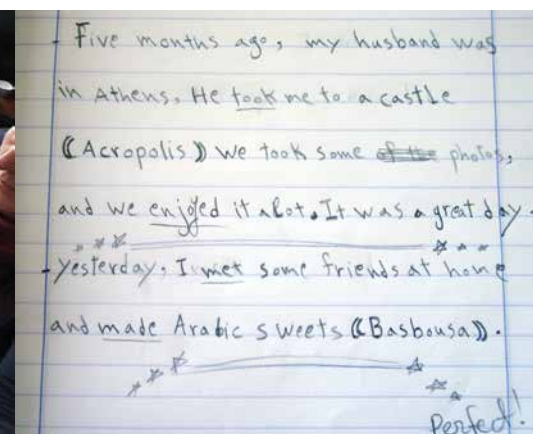 - Five months ago, my husband was
in Athens. He took me to a castle
((Acropolis)) we took some photos,
and we enjoyed it alot. It was a great day.
- yesterday, I met some friends at home
and made Arabic sweets ((Basbousa)).
Perfect!